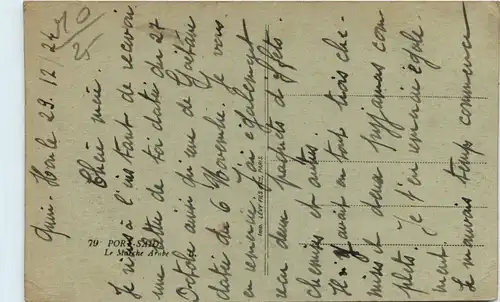 Quin-Hon le 23/12/24
Chère mère.
Je viens à l'instant de recevoir
une lettre de toi datée du 27
Octobre ainsi qu'une de Gaëtane
datée du 6 Novembre. Je vous
en remercie. J'ai également
reçu deux paquets d'effets
chemises et autres.
Il y avait en tout trois che-
mises et deux pyjamas com
plets. Je t'en remercie égale-
ment.
Le mauvais temps commence
79 PORT-SAID
Le Marché Arabe
Imp. LÉVY FILS et Cie, PARIS